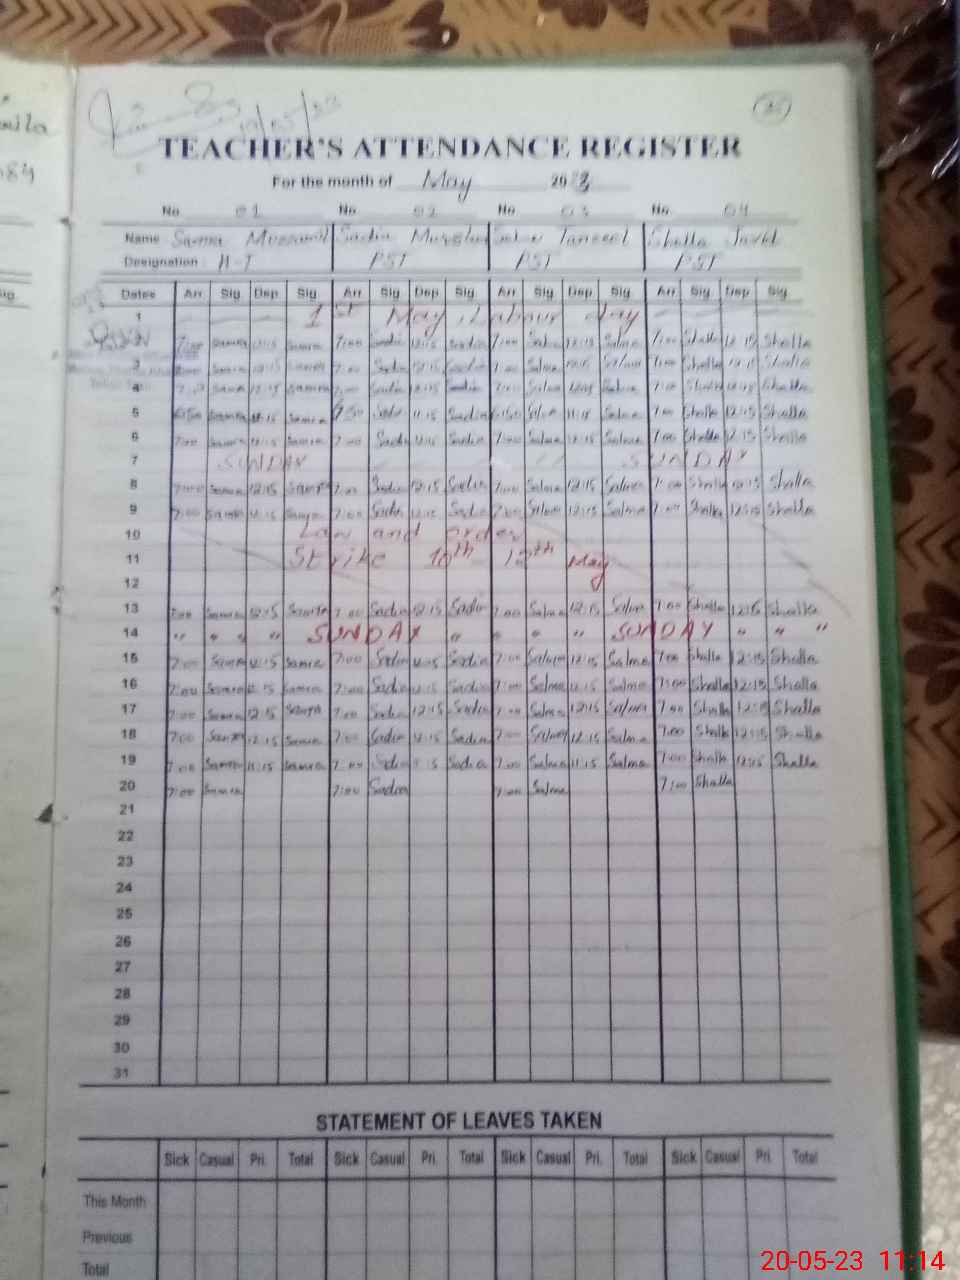 19/05/23
TEACHER'S ATTENDANCE REGISTER
For the month of May 2023
No. 01 No. 02 No. 03 No. 04
Name Samra Sadia Salma Shalla Javid
Designation H-T PST PST PST
Dates Arr Sig Dep Sig Arr Sig Dep Sig Arr Sig Dep Sig Arr Sig Dep Sig
1 1st May, Labour day
7:00 Samra 12:15 Samra 7:00 Sadia 12:15 Sadia 7:00 Salma 12:15 Salma 7:00 Shalla 12:15 Shalla
3 Samra 12:15 Samra 7:00 Sadia 12:15 Sadia 7:00 Salma 12:15 Salma 7:00 Shalla 12:15 Shalla
4 Samra 12:15 Samra 7:00 Sadia 12:15 Sadia 7:00 Salma 12:15 Salma 7:00 Shalla 12:15 Shalla
5 Samra 11:15 Samra Sadia 11:15 Sadia Salma 11:15 Salma 7:00 Shalla 12:15 Shalla
6 7:00 Samra 12:15 Samra 7:00 Sadia 12:15 Sadia 7:00 Salma 12:15 Salma 7:00 Shalla 12:15 Shalla
7 SUNDAY SUNDAY
8 7:00 Samra 12:15 Samra 7:00 Sadia 12:15 Sadia 7:00 Salma 12:15 Salma 7:00 Shalla 12:15 Shalla
9 7:00 Samra 12:15 Samra 7:00 Sadia 12:15 Sadia 7:00 Salma 12:15 Salma 7:00 Shalla 12:15 Shalla
10 Law and order
11 Strike 10th 12th May
12
13 7:00 Samra 12:15 Samra 7:00 Sadia 12:15 Sadia 7:00 Salma 12:15 Salma 7:00 Shalla 12:15 Shalla
14 " " " " SUNDAY " " " " SUNDAY " " "
15 7:00 Samra 12:15 Samra 7:00 Sadia 12:15 Sadia 7:00 Salma 12:15 Salma 7:00 Shalla 12:15 Shalla
16 7:00 Samra 12:15 Samra 7:00 Sadia 12:15 Sadia 7:00 Salma 12:15 Salma 7:00 Shalla 12:15 Shalla
17 7:00 Samra 12:15 Samra 7:00 Sadia 12:15 Sadia 7:00 Salma 12:15 Salma 7:00 Shalla 12:15 Shalla
18 7:00 Samra 12:15 Samra 7:00 Sadia 12:15 Sadia 7:00 Salma 12:15 Salma 7:00 Shalla 12:15 Shalla
19 7:00 Samra 11:15 Samra 7:00 Sadia 11:15 Sadia 7:00 Salma 11:15 Salma 7:00 Shalla 12:15 Shalla
20 7:00 Samra 7:00 Sadia 7:00 Salma 7:00 Shalla
21
22
23
24
25
26
27
28
29
30
31
STATEMENT OF LEAVES TAKEN
Sick Casual Pri. Total Sick Casual Pri. Total Sick Casual Pri. Total Sick Casual Pri. Total
This Month
Previous
Total
20-05-23 11:14